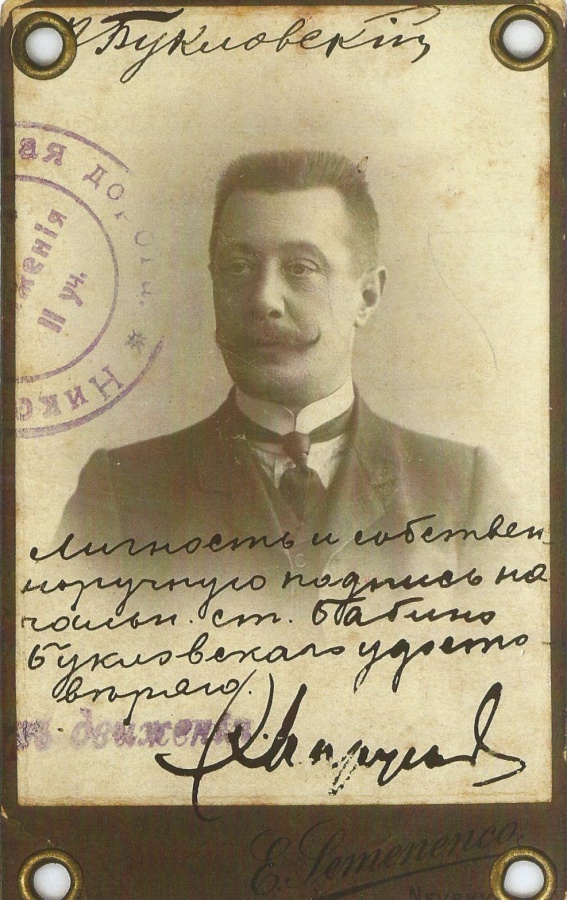 Букловскій
ая дорога. * Нико
женія
II уч.
Личность и собствен
норучную подпись на
чальн. ст. Бабино
Букловскаго удосто
вѣряю.
движенія
E. Semenenco.